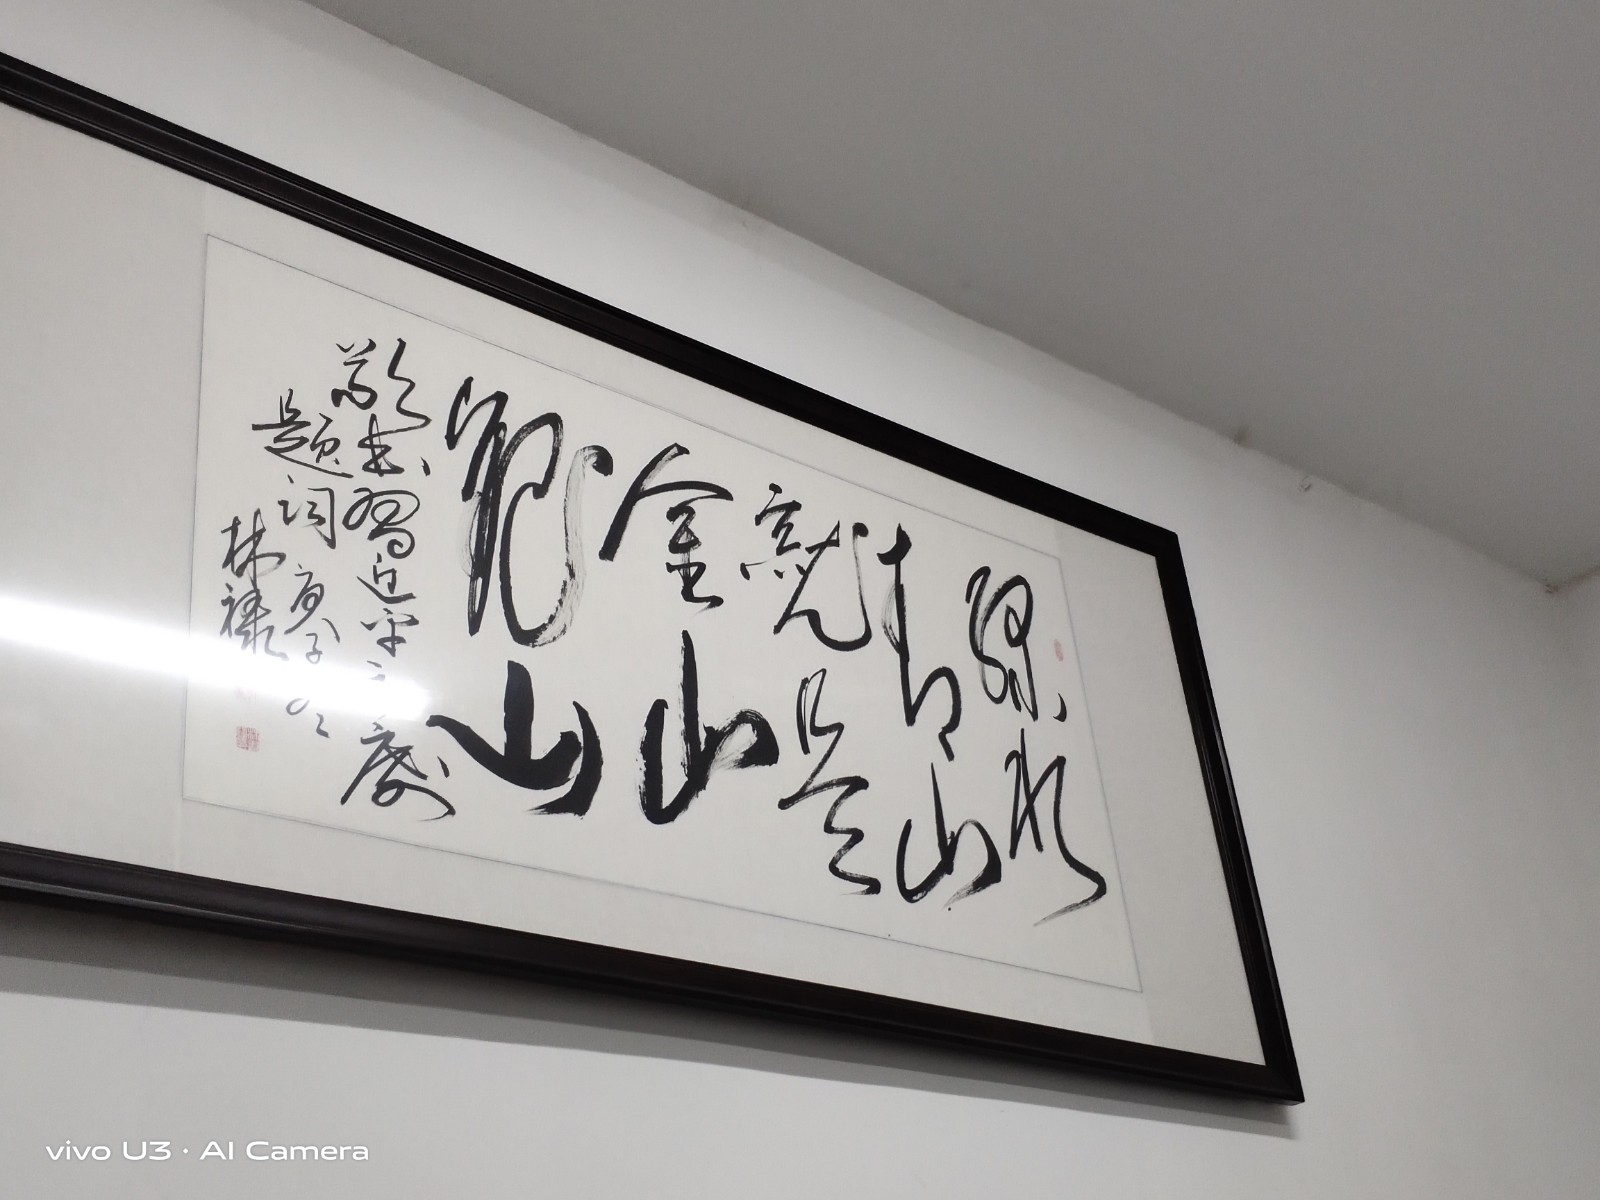 绿水
青山
就是
金山
银山
敬书习近平主席
题词 庚子冬
林禄
vivo U3 · AI Camera